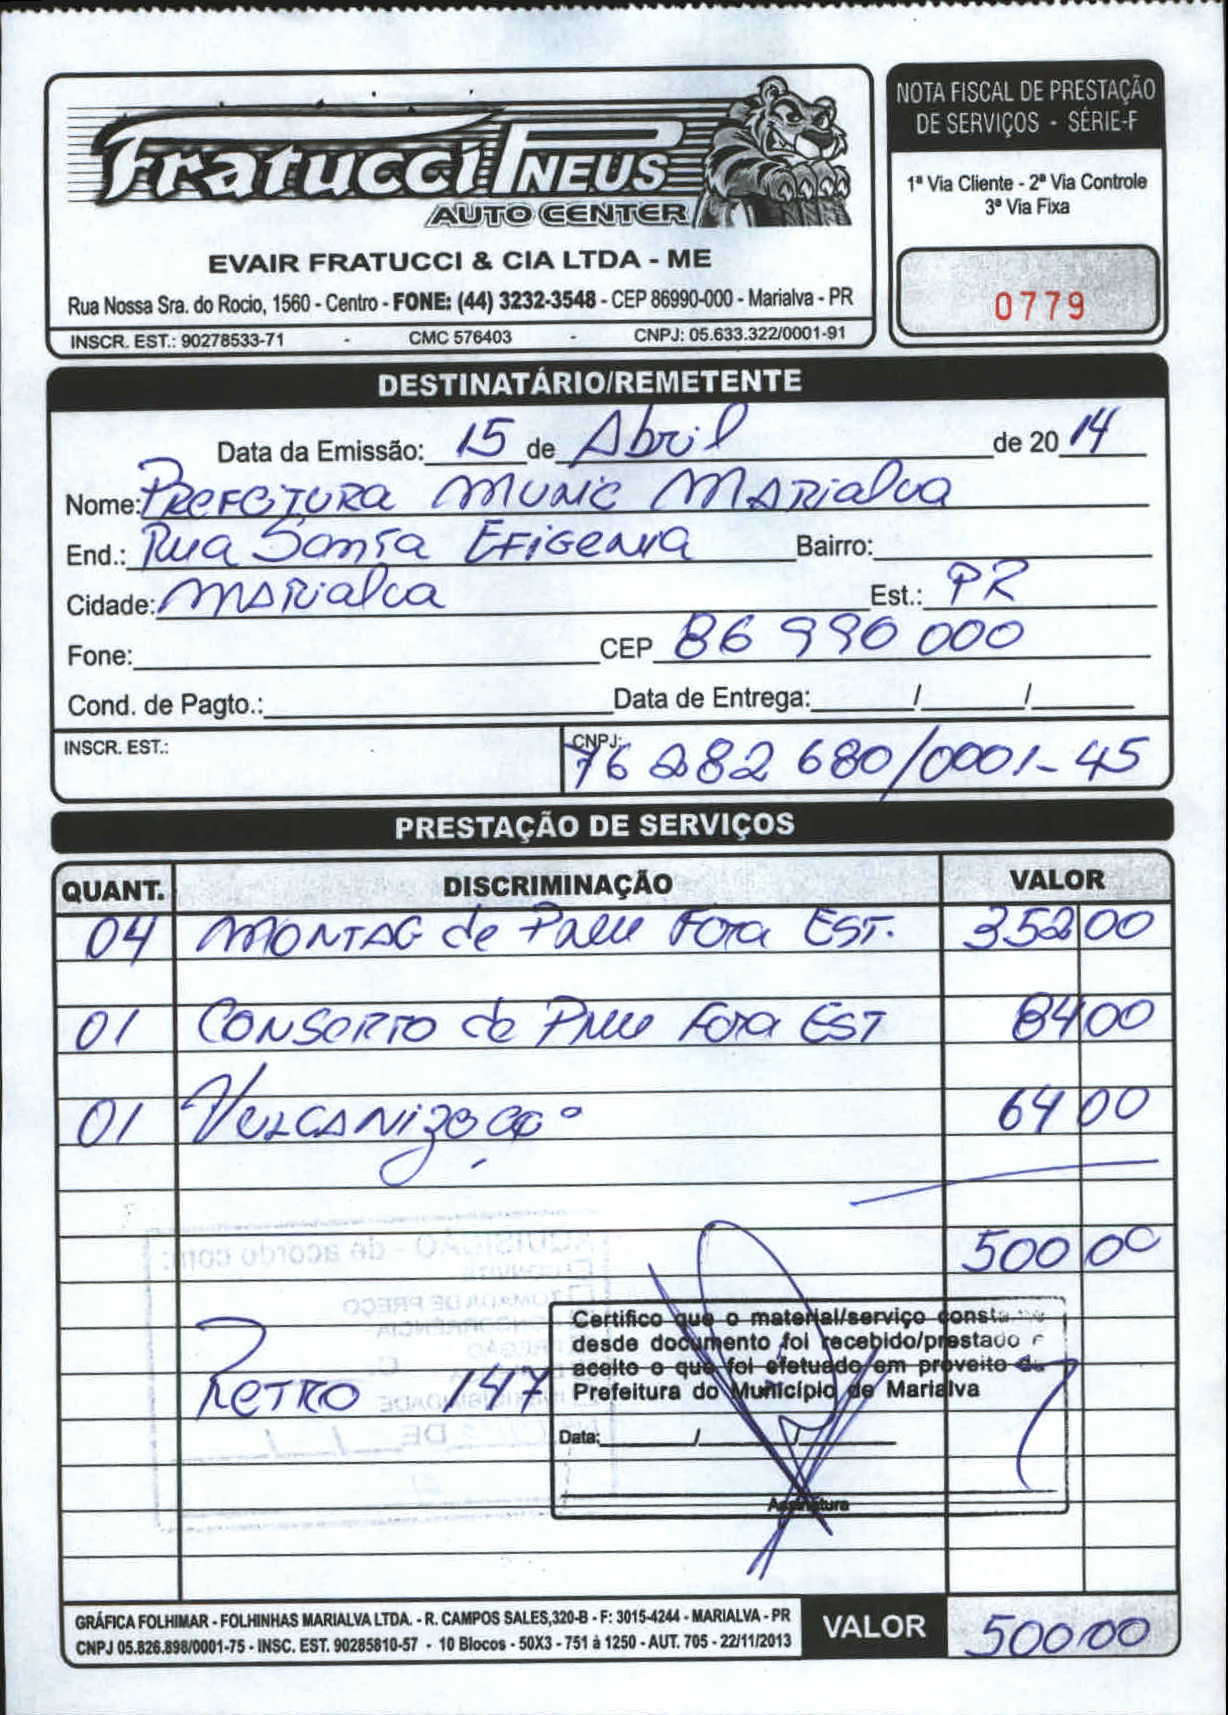 Fratucci PNEUS
AUTO CENTER
EVAIR FRATUCCI & CIA LTDA - ME
Rua Nossa Sra. do Rocio, 1560 - Centro - FONE: (44) 3232-3548 - CEP 86990-000 - Marialva - PR
INSCR. EST.: 90278533-71 - CMC 576403 - CNPJ: 05.633.322/0001-91
NOTA FISCAL DE PRESTAÇÃO
DE SERVIÇOS - SÉRIE-F
1ª Via Cliente - 2ª Via Controle
3ª Via Fixa
0779
DESTINATÁRIO/REMETENTE
Data da Emissão: 15 de Abril de 20 14
Nome: PREFEITURA MUNIC MARIALVA
End.: Rua Santa EFIGENIA Bairro:
Cidade: MARIALVA Est.: PR
Fone: CEP 86 990 000
Cond. de Pagto.: Data de Entrega: / /
INSCR. EST.: CNPJ: 76 282 680/0001-45
PRESTAÇÃO DE SERVIÇOS
QUANT. DISCRIMINAÇÃO VALOR
04 MONTAG de Pneu Fora EST. 352 00
01 CONSERTO de Pneu Fora EST 84 00
01 VULCANIZAÇÃO 64 00
500 00
AQUISIÇÃO - de acordo com:
CONVITE
TOMADA DE PREÇO
CONCORRÊNCIA
DE / /
Certifico que o material/serviço consta
desde documento foi recebido/prestado e
aceito o que foi efetuado em proveito da
Prefeitura do Município de Marialva
RETRO 147
Data: / /
Assinatura
GRÁFICA FOLHIMAR - FOLHINHAS MARIALVA LTDA. - R. CAMPOS SALES,320-B - F: 3015-4244 - MARIALVA - PR
CNPJ 05.826.898/0001-75 - INSC. EST. 90285810-57 - 10 Blocos - 50X3 - 751 à 1250 - AUT. 705 - 22/11/2013
VALOR 500 00